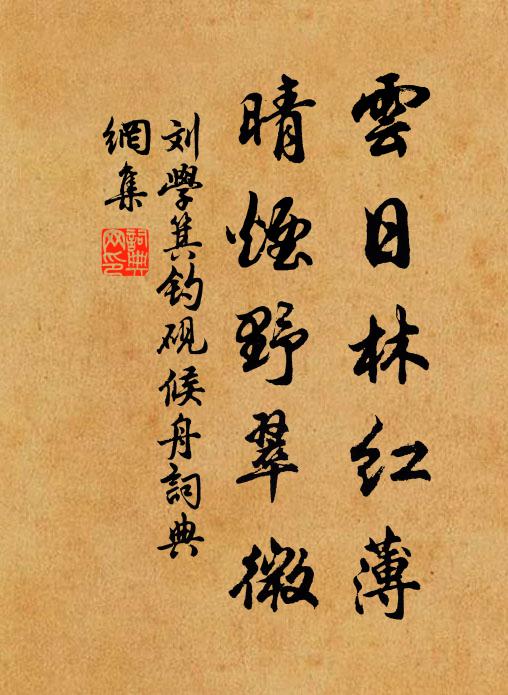 雲日林紅薄
晴煙野翠微
刘學箕钓砚候舟詞典
網集
詞典